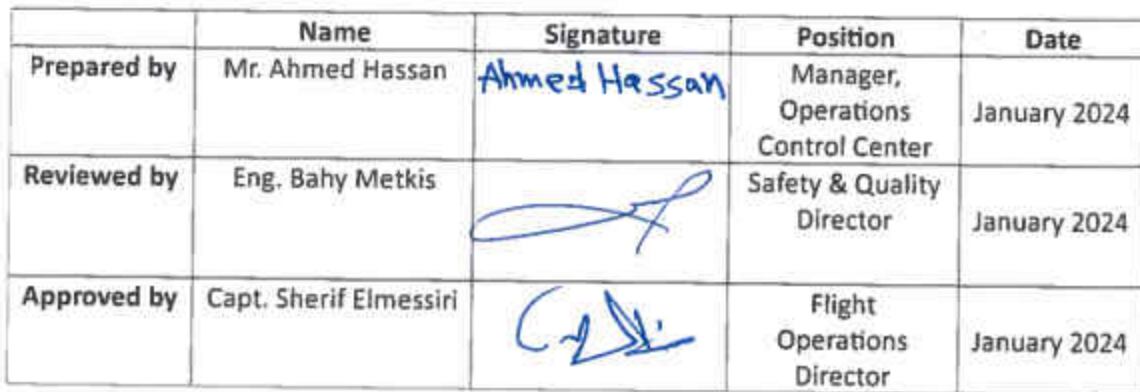 Name Signature Position Date
Prepared by Mr. Ahmed Hassan Ahmed Hassan Manager,
Operations
Control Center January 2024
Reviewed by Eng. Bahy Metkis Safety & Quality
Director January 2024
Approved by Capt. Sherif Elmessiri Flight
Operations
Director January 2024